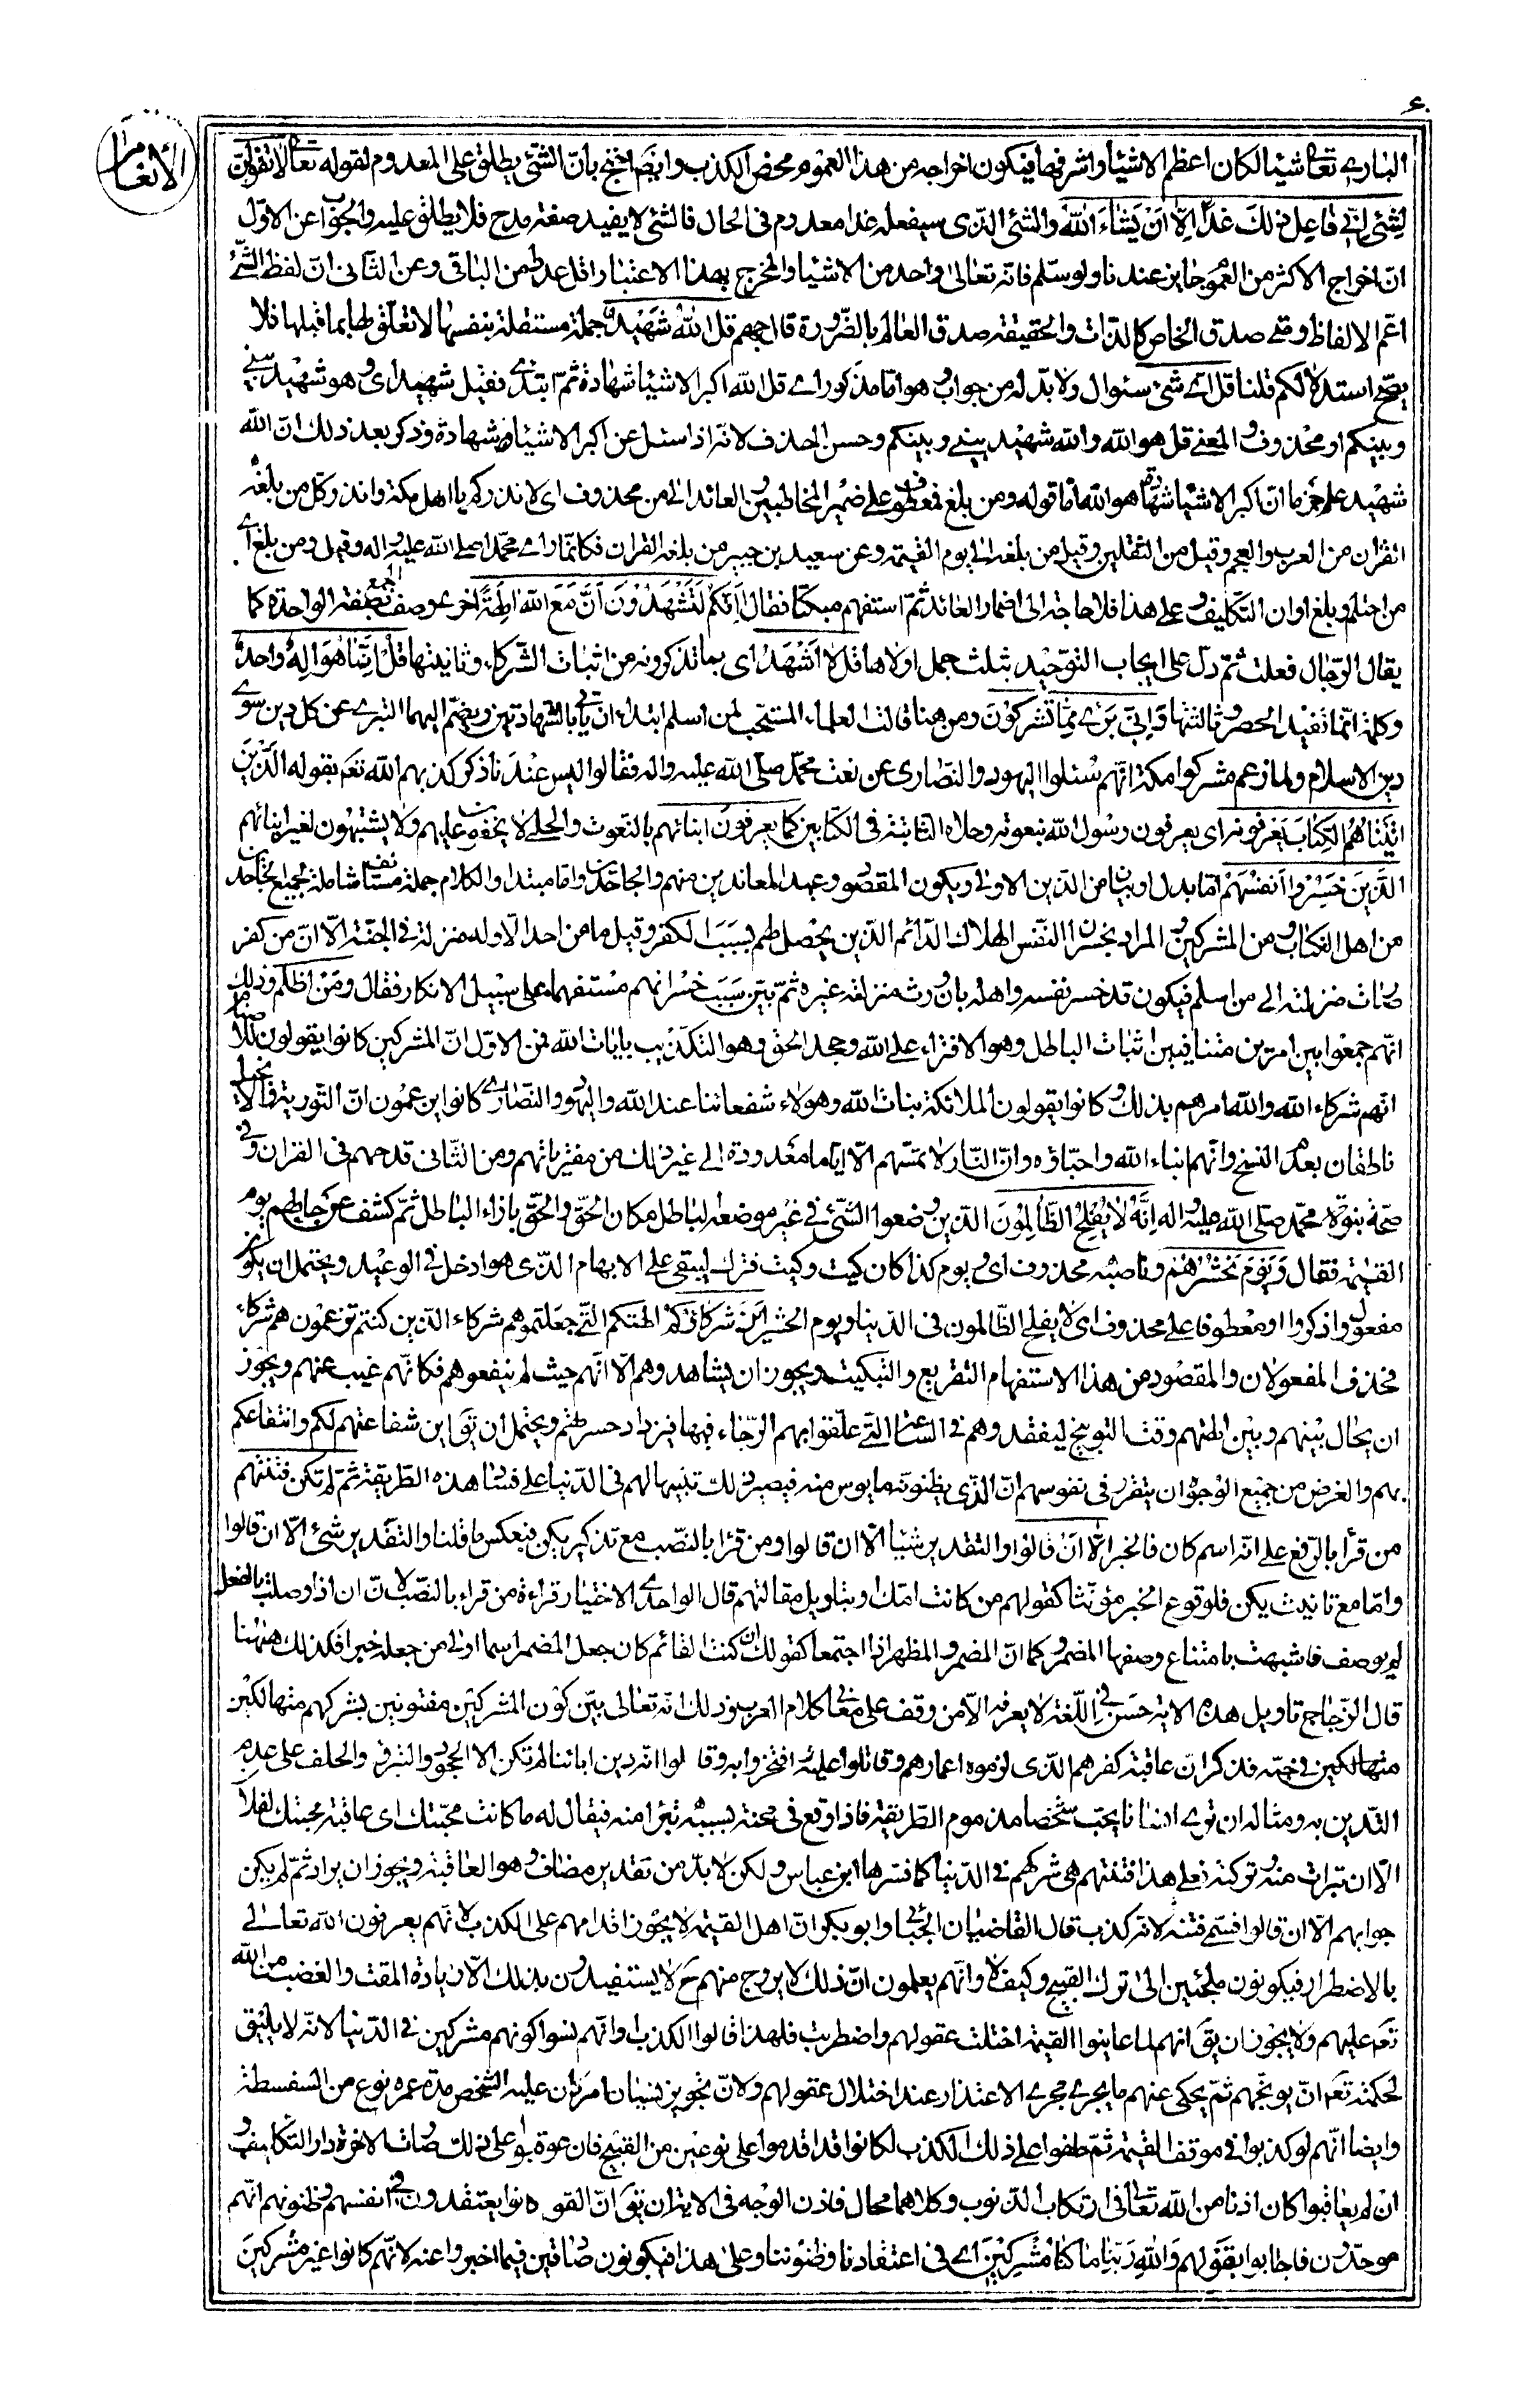 الأنعام
الباري تعالى شيئا لكان اعظم الاشياء واشرفها فيكون اخراجه من هذا العموم محض الكذب وايضا احتج بان الشئ يطلق على المعدوم لقوله تعالى لا تقولن
لشئ اني فاعل ذلك غدا الا أن يشاء الله والشئ الذى سيفعله غدا معدوم فى الحال فالشئ لا يفيد صفة مدح فلا يطلق عليه والجواب عن الاول
ان اخراج الاكثر من العموم جايز عندنا ولو سلم فانه تعالى واحد من الاشياء والمخرج بهذا الاعتبار اقل عددا من الباقى وعن الثانى ان لفظ الشئ
اعم الالفاظ ومتى صدق الخاص كالذات والحقيقة صدق العام بالضرورة قال جهم قل الله شهيد جملة مستقلة بنفسها لا تعلق لها بما قبلها فلا
يصح استدلالكم قلنا قل اي شئ سئوال ولا بد له من جواب وهو اما مذكور اي قل الله اكبر الاشياء شهادة ثم ابتدئ فقيل شهيد اى وهو شهيد بيني
وبينكم او محذوف والمعنى قل هو الله والله شهيد بيني وبينكم وحسن الحذف لانه اذا سئل عن اكبر الاشياء شهادة وذكر بعد ذلك ان الله
شهيد علم جزما ان اكبر الاشياء شهادة هو الله اما قوله ومن بلغ فمعطوف على ضمير المخاطبين والعائد الى من محذوف اى لانذركم يا اهل مكة وانذر كل من بلغه
القران من العرب والعجم وقيل من الثقلين وقيل من بلغه الى يوم القيمة وعن سعيد بن جبير من بلغه القران فكانما راى محمدا صلى الله عليه واله وقيل ومن بلغ اى
من احتلم وبلغ اوان التكليف وعلى هذا فلا حاجة الى اضمار العائد ثم استفهم مبكتا فقال أئنكم لتشهدون أن مع الله الهة اخرى وصف الجمع بصفة الواحدة كما
يقال الرجال فعلت ثم دل على ايجاب التوحيد بثلث جمل اولاها قل لا أشهد اى بما تذكرونه من اثبات الشركاء وثانيتها قل إنما هو اله واحد
وكلمة انما تفيد الحصر وثالثتها وإنني بريء مما تشركون ومن هنا قالت العلماء المستحب لمن اسلم ابتداء ان ياتي بالشهادتين ويضم اليهما التبري عن كل دين سوى
دين الاسلام ولما زعم مشركوا مكة انهم سئلوا اليهود والنصارى عن نعت محمد صلى الله عليه واله فقالوا ليس عندنا ذكر كذبهم الله تعم بقوله الذين
اتيناهم الكتاب يعرفونه اى يعرفون رسول الله بنعوته وحلاه الثابتة فى الكتابين كما يعرفون ابنائهم بالنعوت والحلى لا يخفون عليهم ولا يشتبهون لغير ابنائهم
الذين خسروا أنفسهم اما بدل او بيان من الذين الاولى ويكون المقصود وعيد المعاندين منهم والجاحدين واما مبتدا والكلام جملة مستانفة شاملة لجميع الجاحدين
من اهل الكتاب ومن المشركين والمراد بخسران النفس الهلاك الدائم الذين يحصل لهم بسبب الكفر وقيل ما من احد الا وله منزلة فى الجنة الا ان من كفر
صارت منزلته الى من اسلم فيكون قد خسر نفسه واهله بان ورث منزلته غيره ثم بين سبب خسرانهم مستفهما على سبيل الانكار فقال ومن أظلم وذلك
انهم جمعوا بين امرين متنافيين اثبات الباطل وهو الافتراء على الله وجحد الحق وهو التكذيب بايات الله فمن الاول ان المشركين كانوا يقولون للاصنام
انهم شركاء الله والله امرهم بذلك وكانوا يقولون الملائكة بنات الله وهولاء شفعائنا عند الله واليهود والنصارى كانوا يزعمون ان التورية والانجيل
ناطقان بعدم النسخ وانهم ابناء الله واحباؤه وان النار لا تمسهم الا اياما معدودة الى غير ذلك من مفترياتهم ومن الثانى قدحهم فى القران وفي
صحة نبوة محمد صلى الله عليه واله إنه لا يفلح الظالمون الذين وضعوا الشئ فى غير موضعه الباطل مكان الحق والحق بازاء الباطل ثم كشف عن حالهم يوم
القيمة فقال ويوم نحشرهم وناصبه محذوف اى ويوم كذا كان كيت وكيت فترك ليبقى على الابهام الذى هو ادخل فى الوعيد ويحتمل ان يكون
مفعول واذكروا او معطوفا على محذوف اى لا يفلح الظالمون فى الدنيا ويوم الحشر أين شركاؤكم الهتكم التى جعلتموهم شركاء الذين كنتم تزعمون هم شركاء
فحذف المفعولان والمقصود من هذا الاستفهام التقريع والتبكيت ويجوز ان يشاهدوهم الا انهم حيث لم ينفعوهم فكانهم غيب عنهم ويجوز
ان يحال بينهم وبين الهتهم وقت التوبيخ ليفقدوهم فى الساعة التى علقوا بهم الرجاء فيها فيزداد حسرتهم ويحتمل ان يق اين شفاعتهم لكم وانتفاعكم
بهم والغرض من جميع الوجوه ان يتقرر فى نفوسهم ان الذى يظنونه مايوس منه فيصير ذلك تنبيها لهم فى الدنيا على فساد هذه الطريقة ثم لم تكن فتنتهم
من قرأ بالرفع على انه اسم كان فالخبر الا أن قالوا والتقدير شيئا الا ان قالوا ومن قرا بالنصب مع تذكير يكن فبعكس ما قلنا والتقدير شئ الا ان قالوا
واما مع تانيث يكن فلوقوع الخبر مؤنثا كقولهم من كانت امك او بتاويل مقالتهم قال الواحدى الاختيار قراءة من قراء بالنصب لان ان اذا وصلت بالفعل
لم يوصف فاشبهت بامتناع وصفها المضمر وكما ان المضمر والمظهر اذا اجتمعا كقولك ان كنت القائم كان جعل المضمر اسما اولى من جعله خبرا فكذلك ههنا
قال الزجاج تاويل هذه الاية حسن في اللغة لا يعرفه الا من وقف على معاني كلام العرب وذلك انه تعالى بين كون المشركين مفتونين بشركهم متهالكين
متهالكين في حبه فذكر ان عاقبة كفرهم الذى لزموه اعمارهم وقاتلوا عليه وافتخروا به وقالوا انه دين ابائنا لم تكن الا الجحود والتبرؤ والحلف على عدم
التدين به ومثاله ان ترى انسانا يحب شخصا مذموم الطريقة فاذا وقع فى محنة بسببه تبرا منه فيقال له ما كانت محبتك اى عاقبة محبتك لفلان
الا ان تبرات منه وتركته فعلى هذا فتنتهم هى شركهم فى الدنيا كما فسرها ابن عباس ولكن لا بد من تقدير مضاف وهو العاقبة ويجوز ان يراد ثم لم يكن
جوابهم الا ان قالوا فسمى فتنة لانه كذب قال القاضيان الجبائي وابو بكر ان اهل القيمة لا يجوز اقدامهم على الكذب لانهم يعرفون الله تعالى
بالاضطرار فيكونون ملجئين الى ترك القبيح وكيف لا وانهم يعلمون ان ذلك لا يروج منهم ح لا يستفيدون بذلك الا زيادة المقت والغضب من الله
تعم عليهم ولا يجوز ان يق انهم لما عاينوا القيمة اختلت عقولهم واضطربت فلهذا قالوا الكذب او انهم نسوا كونهم مشركين فى الدنيا لانه لا يليق
لحكمته تعم ان يوبخهم ثم يحكى عنهم ما يجرى مجرى الاعتذار عند اختلال عقولهم ولان تجويز نسيان امر مرن عليه الشخص مدة عمره نوع من السفسطة
وايضا انهم لو كذبوا فى موقف القيمة ثم حلفوا على ذلك الكذب لكانوا قد اقدموا على نوعين من القبيح فان عوقبوا على ذلك صارت الاخرة دار التكليف و
ان لم يعاقبوا كان اذنا من الله تعالى فى ارتكاب الذنوب وكلاهما محال فاذن الوجه فى الاية ان يق ان القوم كانوا يعتقدون في انفسهم وظنونهم انهم
موحدون فاجابوا بقولهم والله ربنا ما كنا مشركين اي فى اعتقادنا وظنوننا وعلى هذا فيكونون صادقين فيما اخبروا عنه لانهم كانوا غير مشركين